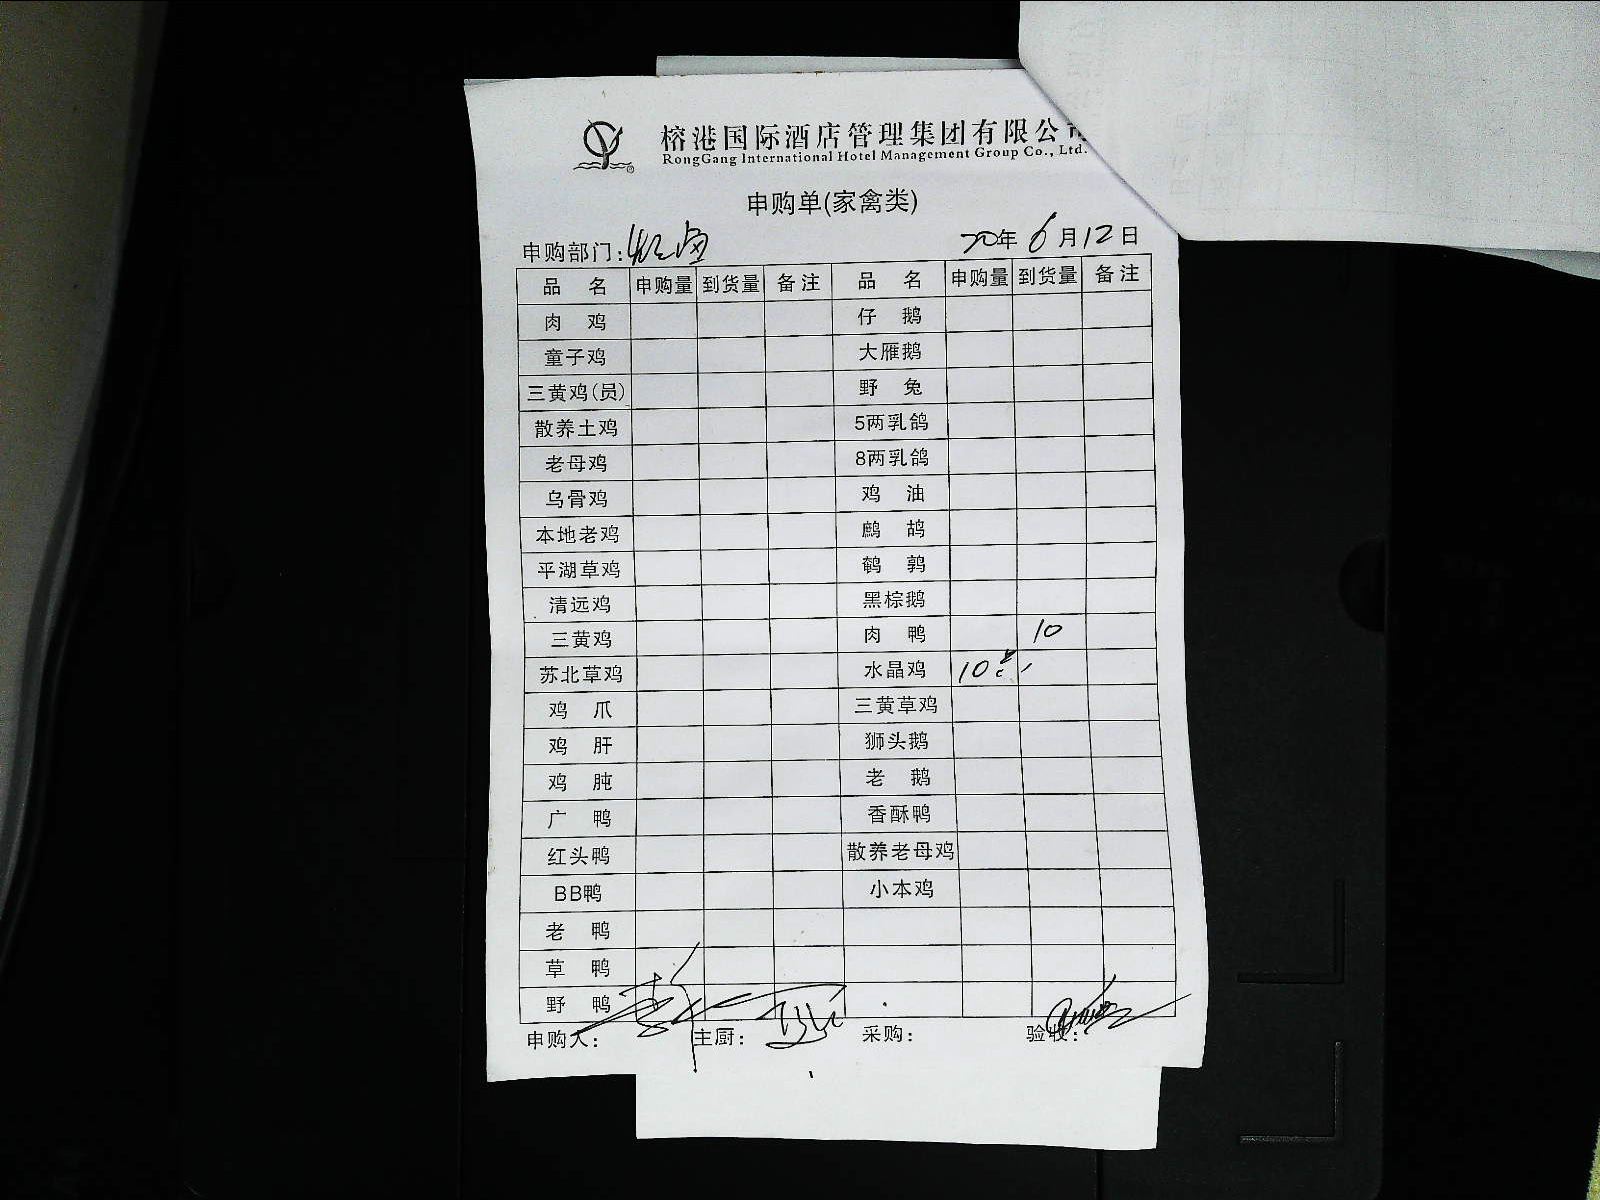 榕港国际酒店管理集团有限公司
RongGang International Hotel Management Group Co., Ltd.
申购单(家禽类)
申购部门: 20年6月12日
品名 申购量 到货量 备注 品名 申购量 到货量 备注
肉鸡 仔鹅
童子鸡 大雁鹅
三黄鸡(员) 野兔
散养土鸡 5两乳鸽
老母鸡 8两乳鸽
乌骨鸡 鸡油
本地老鸡 鹧鸪
平湖草鸡 鹌鹑
清远鸡 黑棕鹅
三黄鸡 肉鸭 10
苏北草鸡 水晶鸡 10
鸡爪 三黄草鸡
鸡肝 狮头鹅
鸡肫 老鹅
广鸭 香酥鸭
红头鸭 散养老母鸡
BB鸭 小本鸡
老鸭
草鸭
野鸭
申购人: 主厨: 采购: 验收: